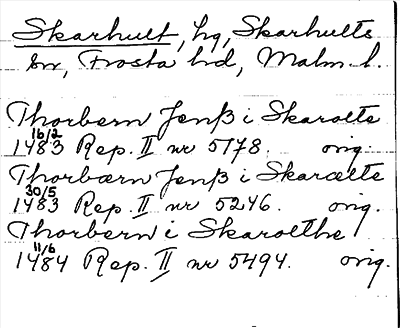 Skarhult, hg, Skarhults
sn, Frosta hd, Malm. l.
Thorbern Jenß i Skarolte
16/2
1483 Rep. II nr 5178. orig.
Thorbærn Jenß i Skarœlte
30/5
1483 Rep. II nr 5246. orig.
Thorbern i Skarolthe
11/6
1484 Rep. II nr 5494. orig.